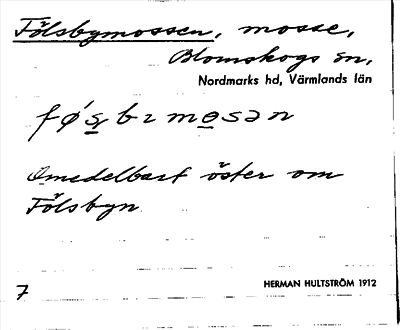 Fölsbymossen, mosse,
Blomskogs sn,
Nordmarks hd, Värmlands län
fǿs̱bɪmo̱sən
Omedelbart öster om
Fölsbyn
HERMAN HULTSTRÖM 1912
7